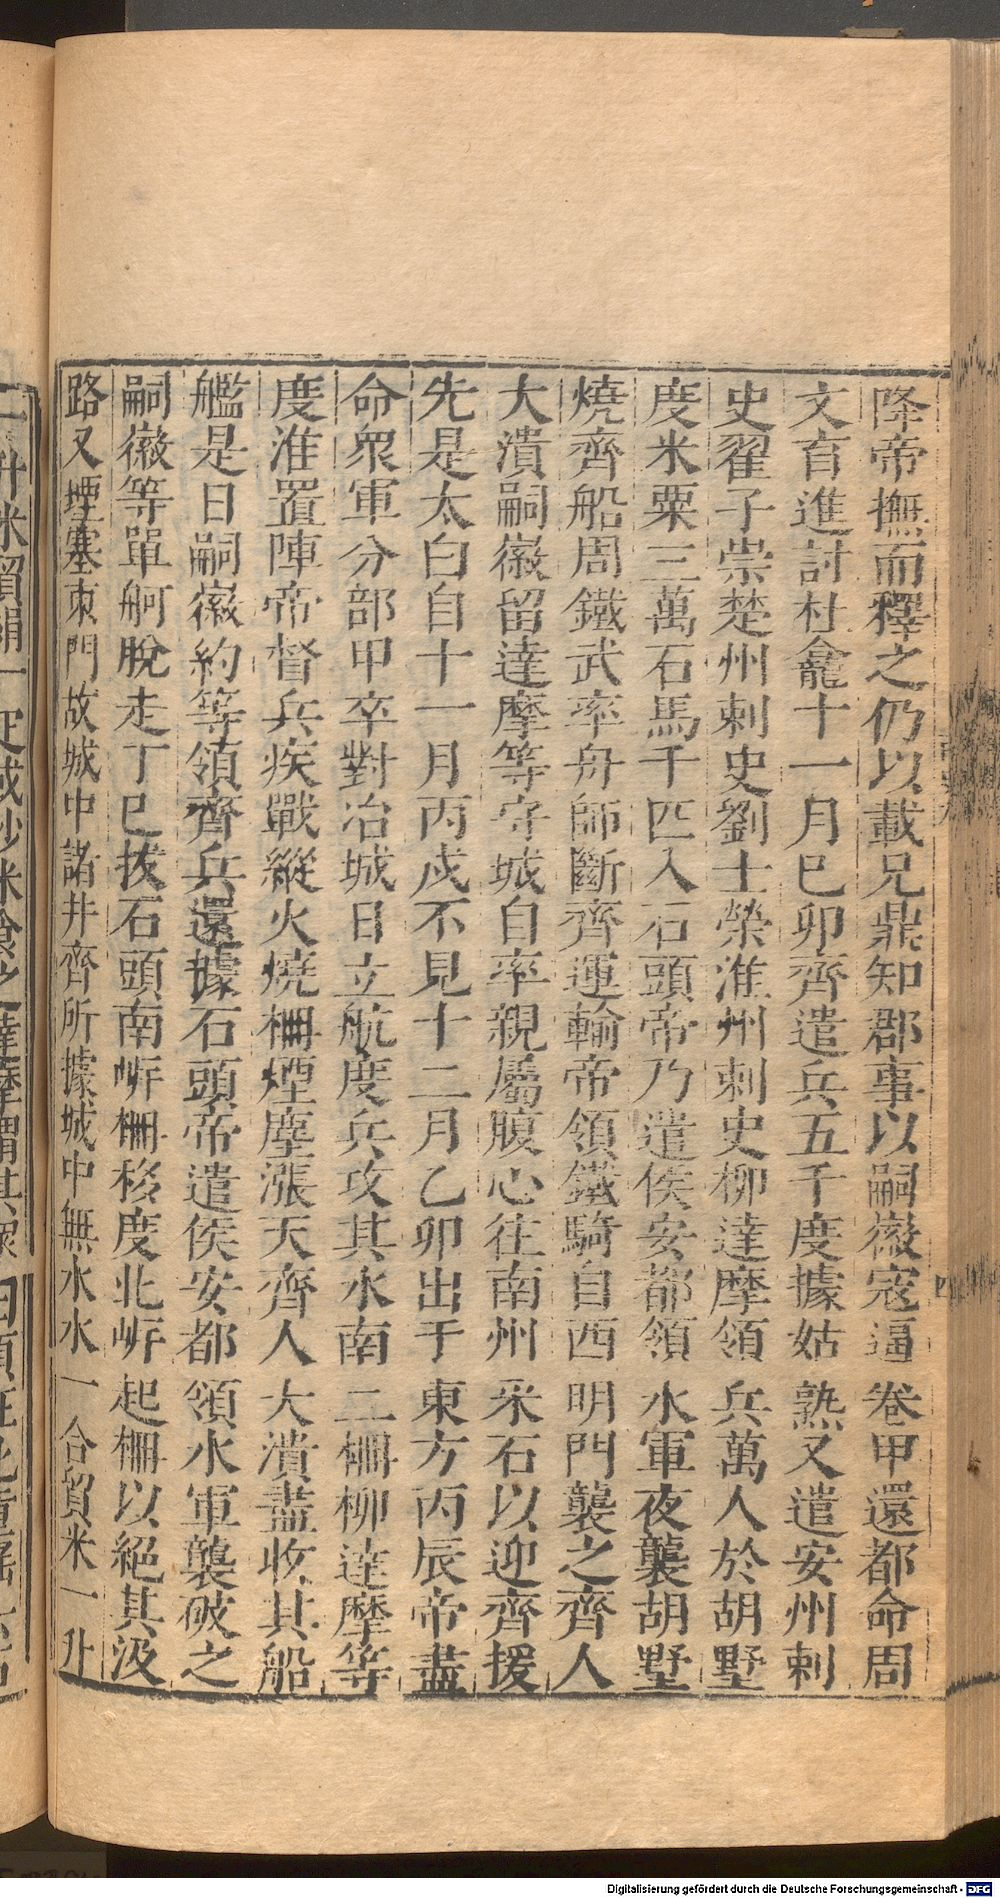 降帝撫而釋之仍以載兄鼎知郡事以嗣徽寇逼卷甲還都命周
文育進討杜龕十一月己卯齊遣兵五千度據姑熟又遣安州刺
史翟子崇楚州刺史劉士榮淮州刺史柳達摩領兵萬人於胡墅
度米粟三萬石馬千匹入石頭帝乃遣侯安都領水軍夜襲胡墅
燒齊船周鐵武率舟師斷齊運輸帝領鐵騎自西明門襲之齊人
大潰嗣徽留達摩等守城自率親屬腹心往南州采石以迎齊援
先是太白自十一月丙戌不見十二月乙卯出于東方丙辰帝盡
命眾軍分部甲卒對冶城日立航度兵攻其水南二柵柳達摩等
度淮置陣帝督兵疾戰縱火燒柵煙塵漲天齊人大潰盡收其船
艦是日嗣徽約等領齊兵還據石頭帝遣侯安都領水軍襲破之
嗣徽等單舸脫走丁巳拔石頭南岍柵移度北岍起柵以絕其汲
路又堙塞東門故城中諸井齊所據城中無水水一合貿米一升
Digitalisierung gefördert durch die Deutsche Forschungsgemeinschaft - DFG